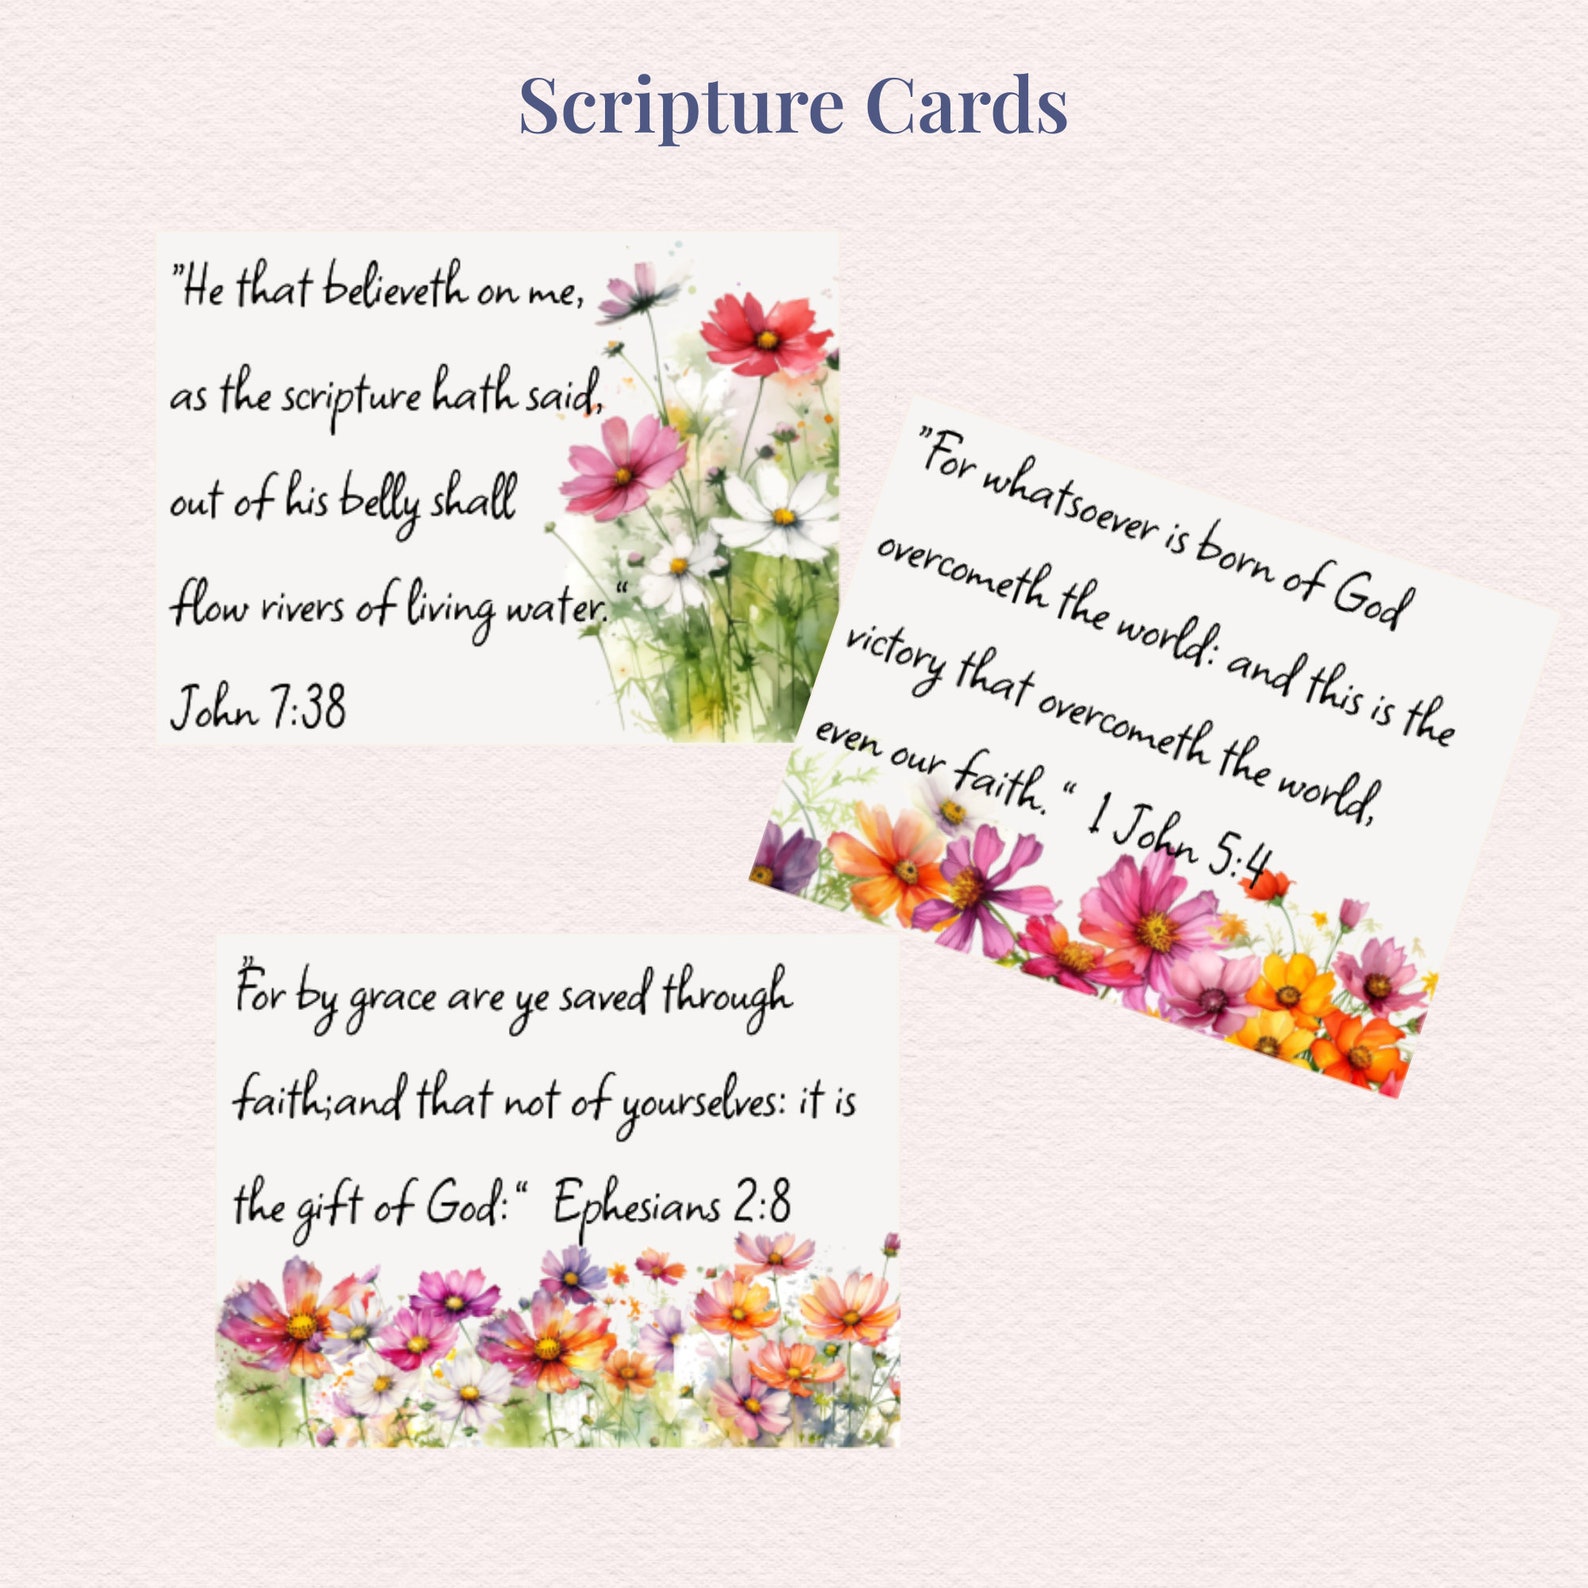 Scripture Cards
”He that believeth on me,
as the scripture hath said,
out of his belly shall
flow rivers of living water.“
John 7:38
”For whatsoever is born of God
overcometh the world: and this is the
victory that overcometh the world,
even our faith.“ 1 John 5:4
”For by grace are ye saved through
faith;and that not of yourselves: it is
the gift of God:“ Ephesians 2:8